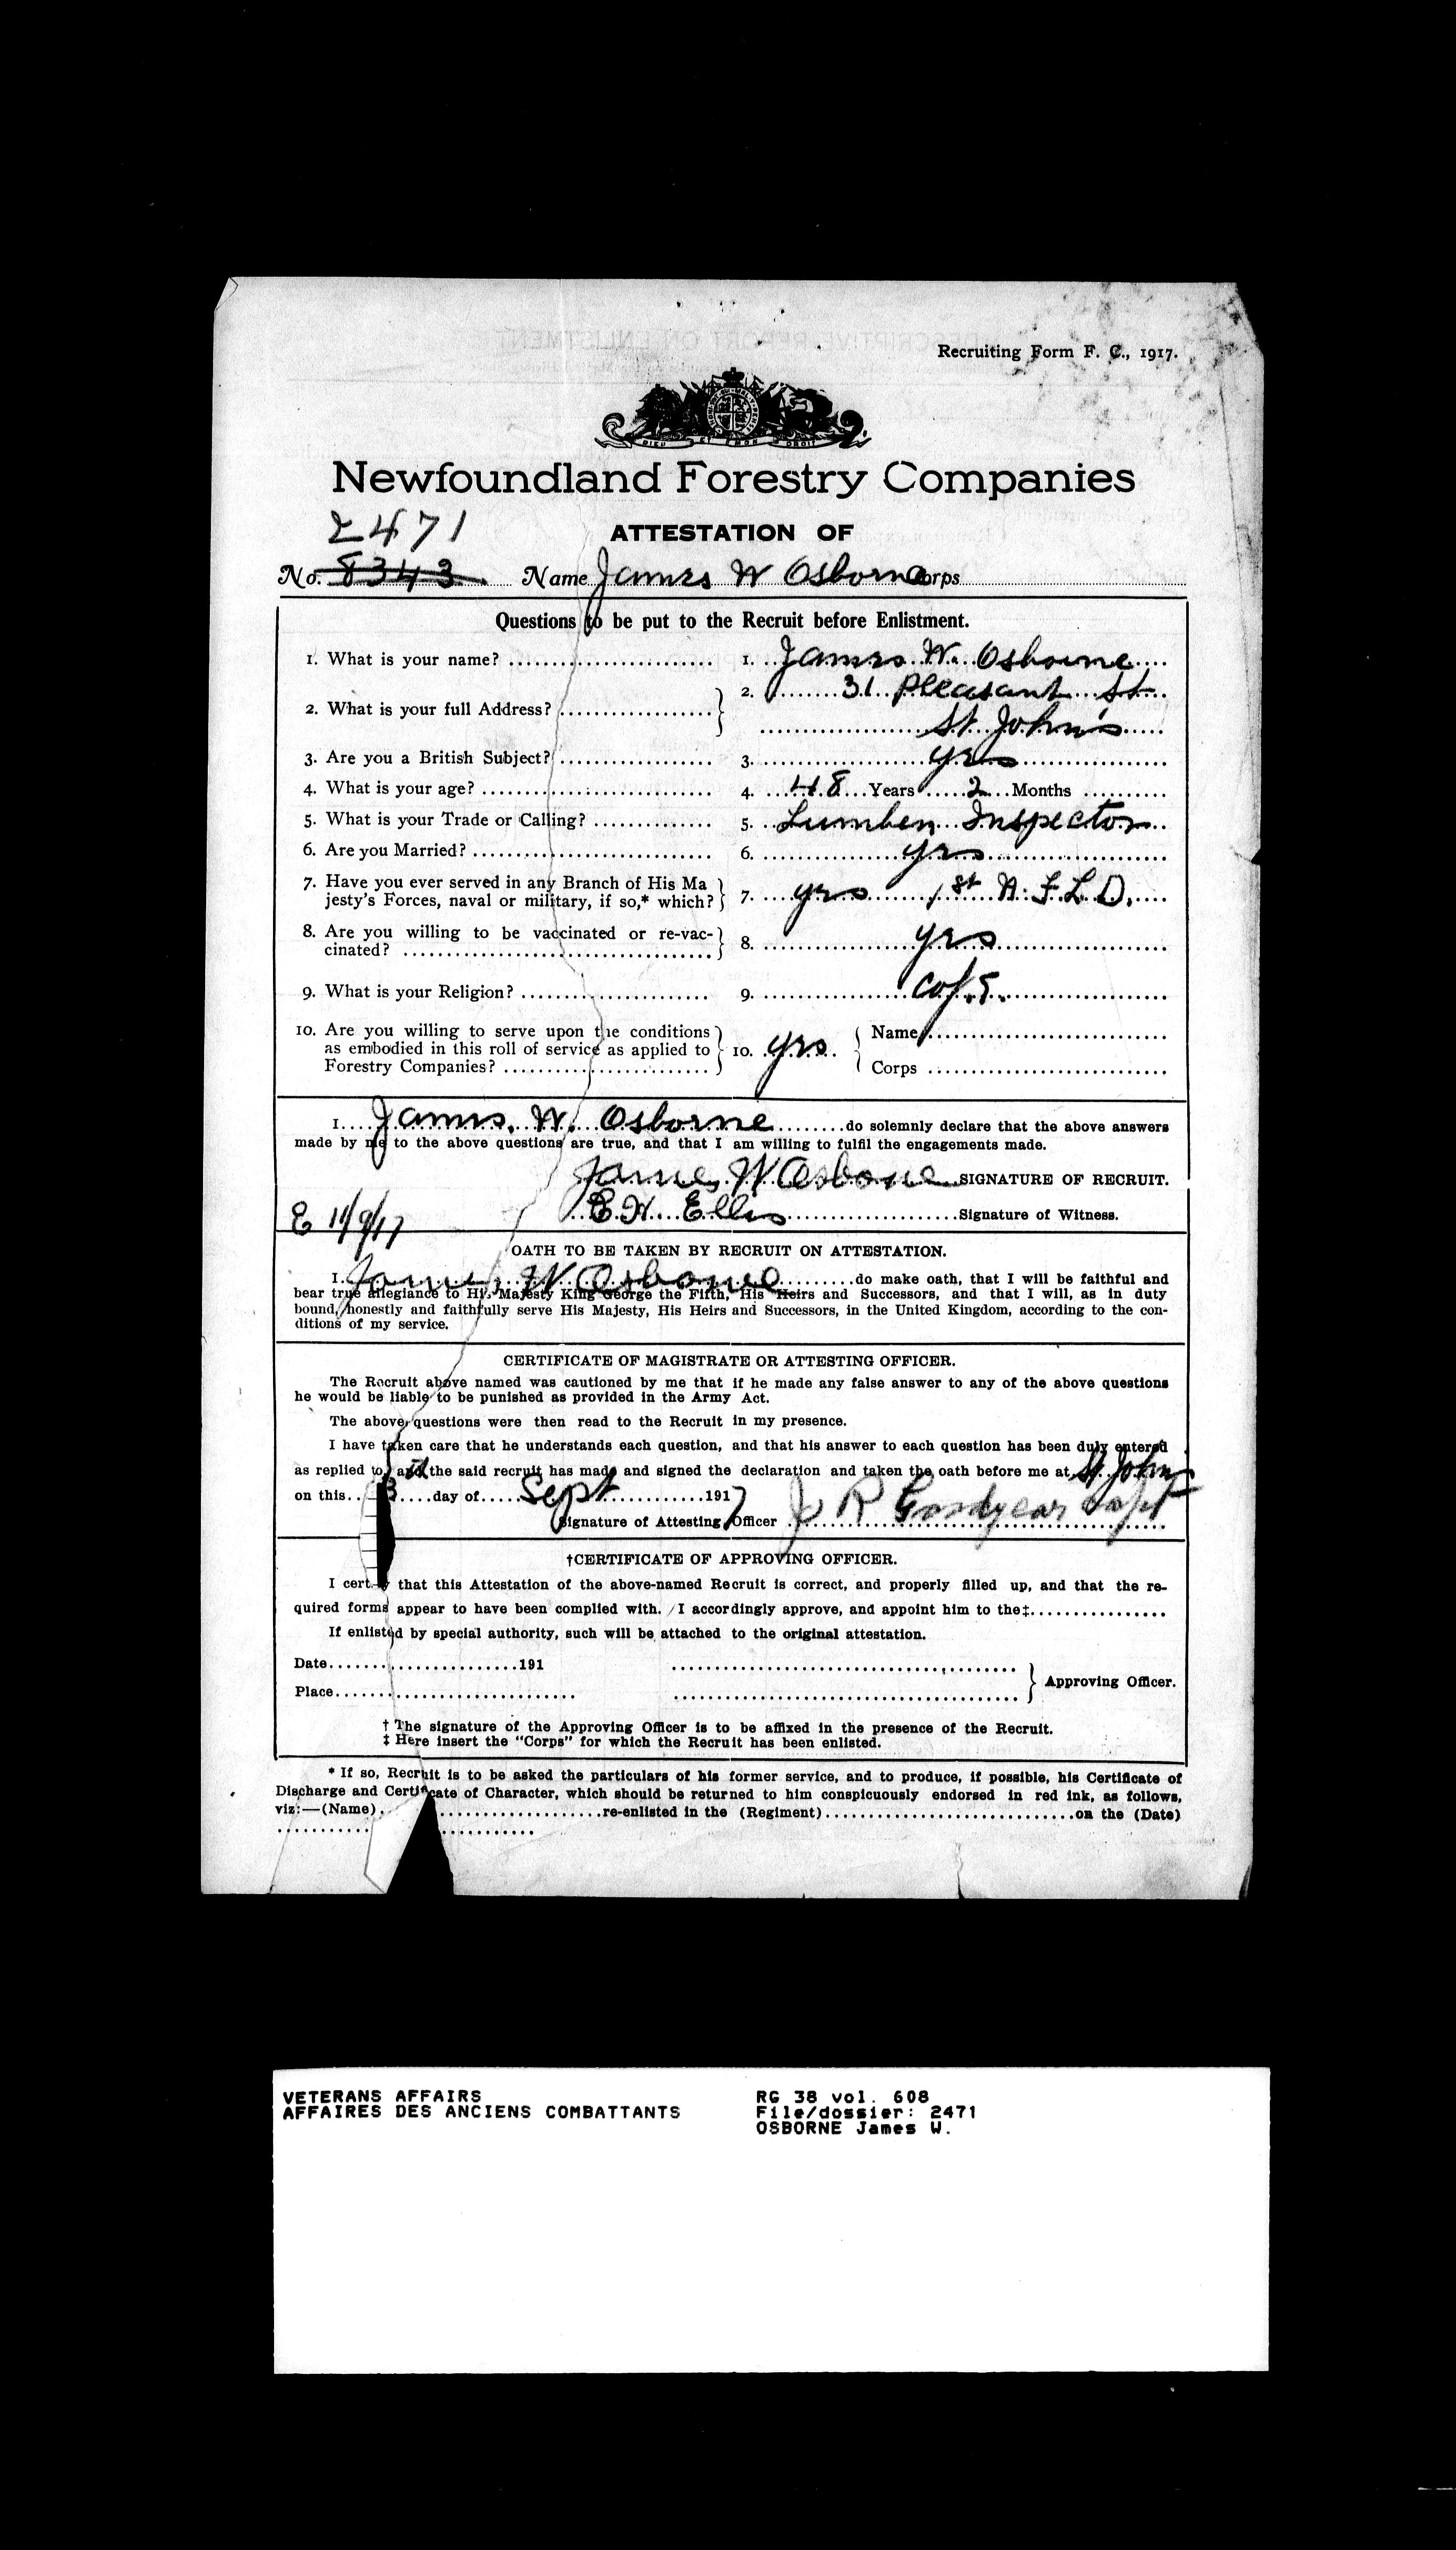 Recruiting Form F. C., 1917.
DIEU ET MON DROIT
Newfoundland Forestry Companies
2471
ATTESTATION OF
No. 8343 Name James W Osborne Corps
Questions to be put to the Recruit before Enlistment.
1. What is your name? 1. James W. Osborne
2. What is your full Address? 2. 31 Pleasant St
St. John's
3. Are you a British Subject? 3. yes
4. What is your age? 4. 48 Years 2 Months
5. What is your Trade or Calling? 5. Lumber Inspector
6. Are you Married? 6. yes
7. Have you ever served in any Branch of His Ma
jesty's Forces, naval or military, if so,* which? 7. yes 1st N. F. L. D.
8. Are you willing to be vaccinated or re-vac-
cinated? 8. yes
9. What is your Religion? 9. C of E.
10. Are you willing to serve upon the conditions
as embodied in this roll of service as applied to
Forestry Companies? 10. yes. Name
Corps
I James. W. Osborne do solemnly declare that the above answers
made by me to the above questions are true, and that I am willing to fulfil the engagements made.
James W Osborne SIGNATURE OF RECRUIT.
E 11/9/17 E. H. Ellis Signature of Witness.
OATH TO BE TAKEN BY RECRUIT ON ATTESTATION.
I James W Osborne do make oath, that I will be faithful and
bear true allegiance to His Majesty King George the Fifth, His Heirs and Successors, and that I will, as in duty
bound, honestly and faithfully serve His Majesty, His Heirs and Successors, in the United Kingdom, according to the con-
ditions of my service.
CERTIFICATE OF MAGISTRATE OR ATTESTING OFFICER.
The Recruit above named was cautioned by me that if he made any false answer to any of the above questions
he would be liable to be punished as provided in the Army Act.
The above questions were then read to the Recruit in my presence.
I have taken care that he understands each question, and that his answer to each question has been duly entered
as replied to, and the said recruit has made and signed the declaration and taken the oath before me at St. Johns
on this 3 day of Sept 1917
Signature of Attesting Officer J R Goodyear Capt
†CERTIFICATE OF APPROVING OFFICER.
I certify that this Attestation of the above-named Recruit is correct, and properly filled up, and that the re-
quired forms appear to have been complied with. I accordingly approve, and appoint him to the‡
If enlisted by special authority, such will be attached to the original attestation.
Date 191
Place Approving Officer.
† The signature of the Approving Officer is to be affixed in the presence of the Recruit.
‡ Here insert the "Corps" for which the Recruit has been enlisted.
* If so, Recruit is to be asked the particulars of his former service, and to produce, if possible, his Certificate of
Discharge and Certificate of Character, which should be returned to him conspicuously endorsed in red ink, as follows,
viz:—(Name) re-enlisted in the (Regiment) on the (Date)
VETERANS AFFAIRS RG 38 vol. 608
AFFAIRES DES ANCIENS COMBATTANTS File/dossier: 2471
OSBORNE James W.